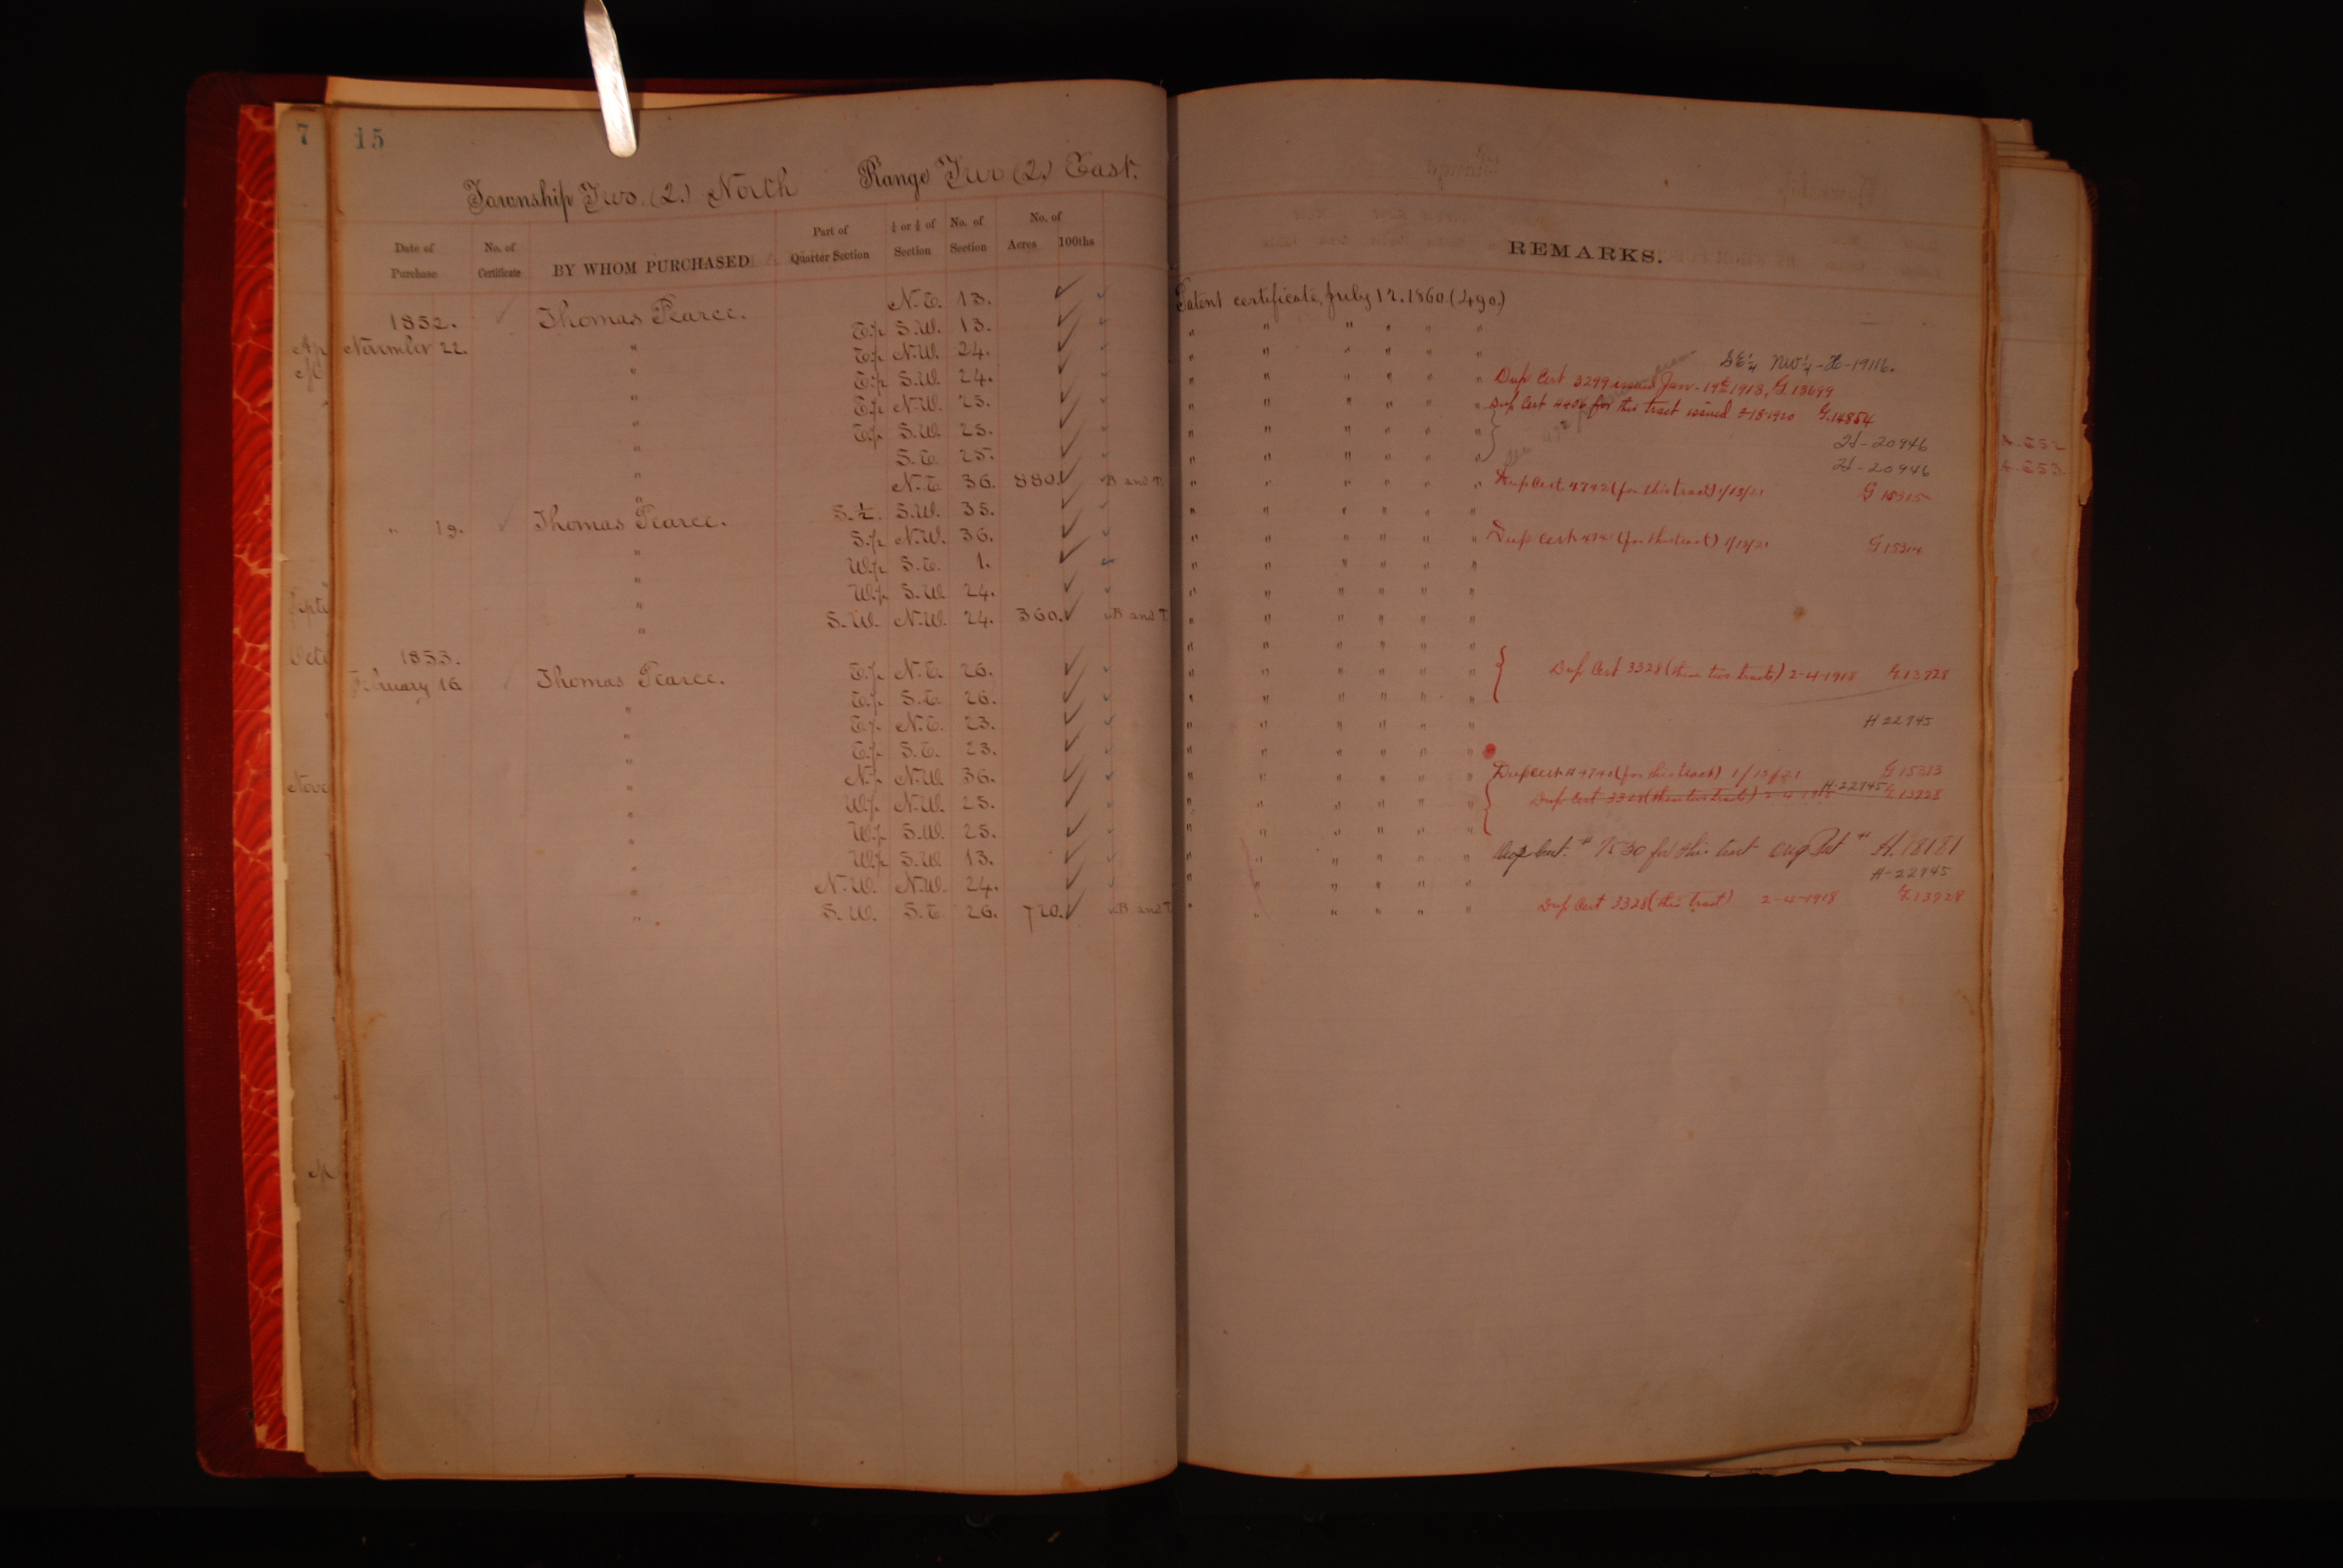 7 15
Township Two (2.) North Range Two (2.) East.
Date of Purchase No. of Certificate BY WHOM PURCHASED Part of Quarter Section ½ or ¼ of Section No. of Section No. of Acres 100ths REMARKS.
1852. Thomas Pearce. N.E. 13. Patent certificate, July 12. 1860. (490.)
November 22. " E.½ S.W. 13. " " " " " "
" E.½ N.W. 24. " " " " " " SE¼ NW¼-H-19116.
" E.½ S.W. 24. " " " " " " Dup Cert 3299 issued Jan-19th 1918, G.13699
" E.½ N.W. 25. " " " " " " Dup Cert 4406 for this tract issued G.14854
" E.½ S.W. 25. " " " " " " 20946
" S.E. 25. " " " " " " 20946
" N.E. 36. 880. B and T. " " " " " " Dup Cert 4742 (for this tract) 1/13/21 G 15315
" 19. Thomas Pearce. S.½ S.W. 35. " " " " " "
" S.½ N.W. 36. " " " " " " Dup Cert 4741 (for this tract) 1/13/21 G 15314
" W.½ S.E. 1. " " " " " "
" W.½ S.W. 24. " " " " " "
" S.W. N.W. 24. 360. B and T. " " " " " "
1853.
February 16 Thomas Pearce. E.½ N.E. 26. " " " " " " Dup Cert 3328 (these two tracts) 2-4-1918 G.13728
" E.½ S.E. 26. " " " " " "
" E.½ N.E. 23. " " " " " " H 22945
" E.½ S.E. 23. " " " " " "
" N.½ N.W. 36. " " " " " " Dup Cert # 4740 (for this tract) 1/13/21 G 15313
" W.½ N.W. 25. " " " " " " Dup Cert 3328 (these two tracts) 2-4-1918 H-22945 G.13728
" W.½ S.W. 25. " " " " " "
" W.½ S.W. 13. " " " " " " Dup Cert. # 7530 for this tract H.18181
" N.W. N.W. 24. " " " " " " H-22945
" S.W. S.E. 26. 720. B and T " " " " " " Dup Cert 3328 (this tract) 2-4-1918 G.13728